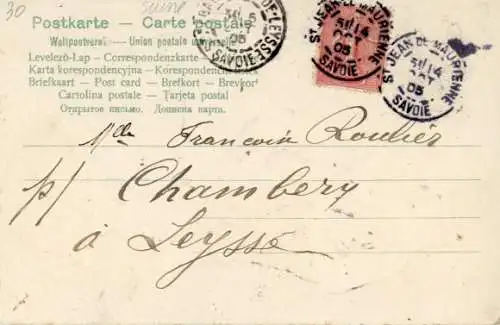 30
Postkarte - Carte postale
Weltpostverein - Union postale universelle
Levelező-Lap - Correspondenzkarte
Karta korespondencyjna - Korespondenční
Briefkaart - Post card - Brefkort - Brevkort
Cartolina postale - Tarjeta postal
Открытое письмо. Дописна карта.
DE-LEYSSE
05
SAVOIE
ST JEAN DE MAURIENNE
5E/14
OCT
05
SAVOIE
ST JEAN DE MAURIENNE
5E/14
OCT
05
SAVOIE
Mlle Francoin Roulier
p/ Chambéry
à Leysse